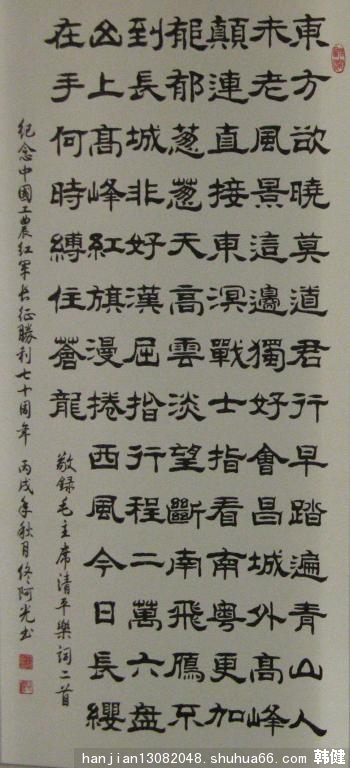 東方欲曉莫道君行早踏遍青山人
未老風景這邊獨好會昌城外高峰
顛連直接東溟戰士指看南粵更加
郁郁蔥蔥天高雲淡望斷南飛鴈不
到長城非好漢屈指行程二萬六盤
山上高峰紅旗漫捲西風今日長纓
在手何時縛住蒼龍
敬錄毛主席清平樂詞二首
紀念中國工農紅軍長征勝利七十周年 丙戌年秋月佟阿光书
hanjian13082048.shuhua66.com 韩健